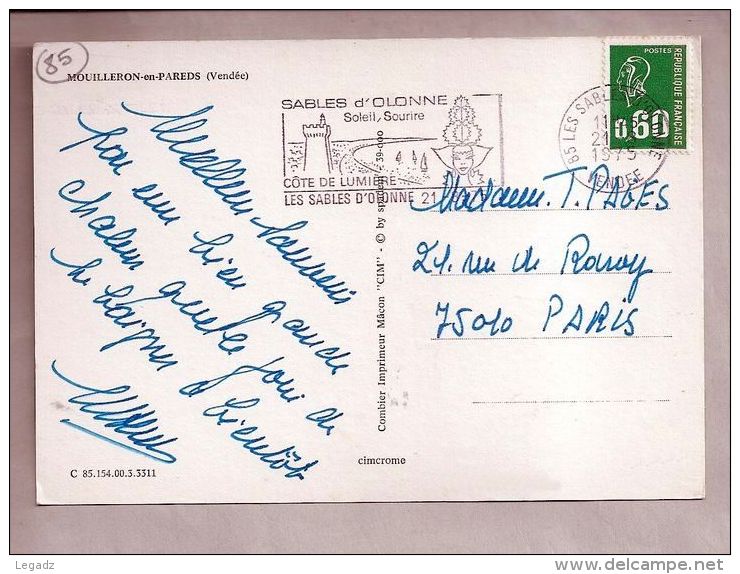 85
MOUILLERON-en-PAREDS (Vendée)
Meilleurs Souvenirs
par une bien grande
chaleur quelle joie de
se baigner à bientôt
C 85.154.00.3.3311
SABLES d'OLONNE
Soleil, Sourire
CÔTE DE LUMIÈRE
LES SABLES D'OLONNE 21
POSTES
RÉPUBLIQUE FRANÇAISE
0.60
85 LES SABLES
1975
VENDEE
Combier Imprimeur Mâcon "CIM" - © by
Madame. T. PAGES
21. rue de
75010 PARIS
cimcrome
Legadz
delcampe.net